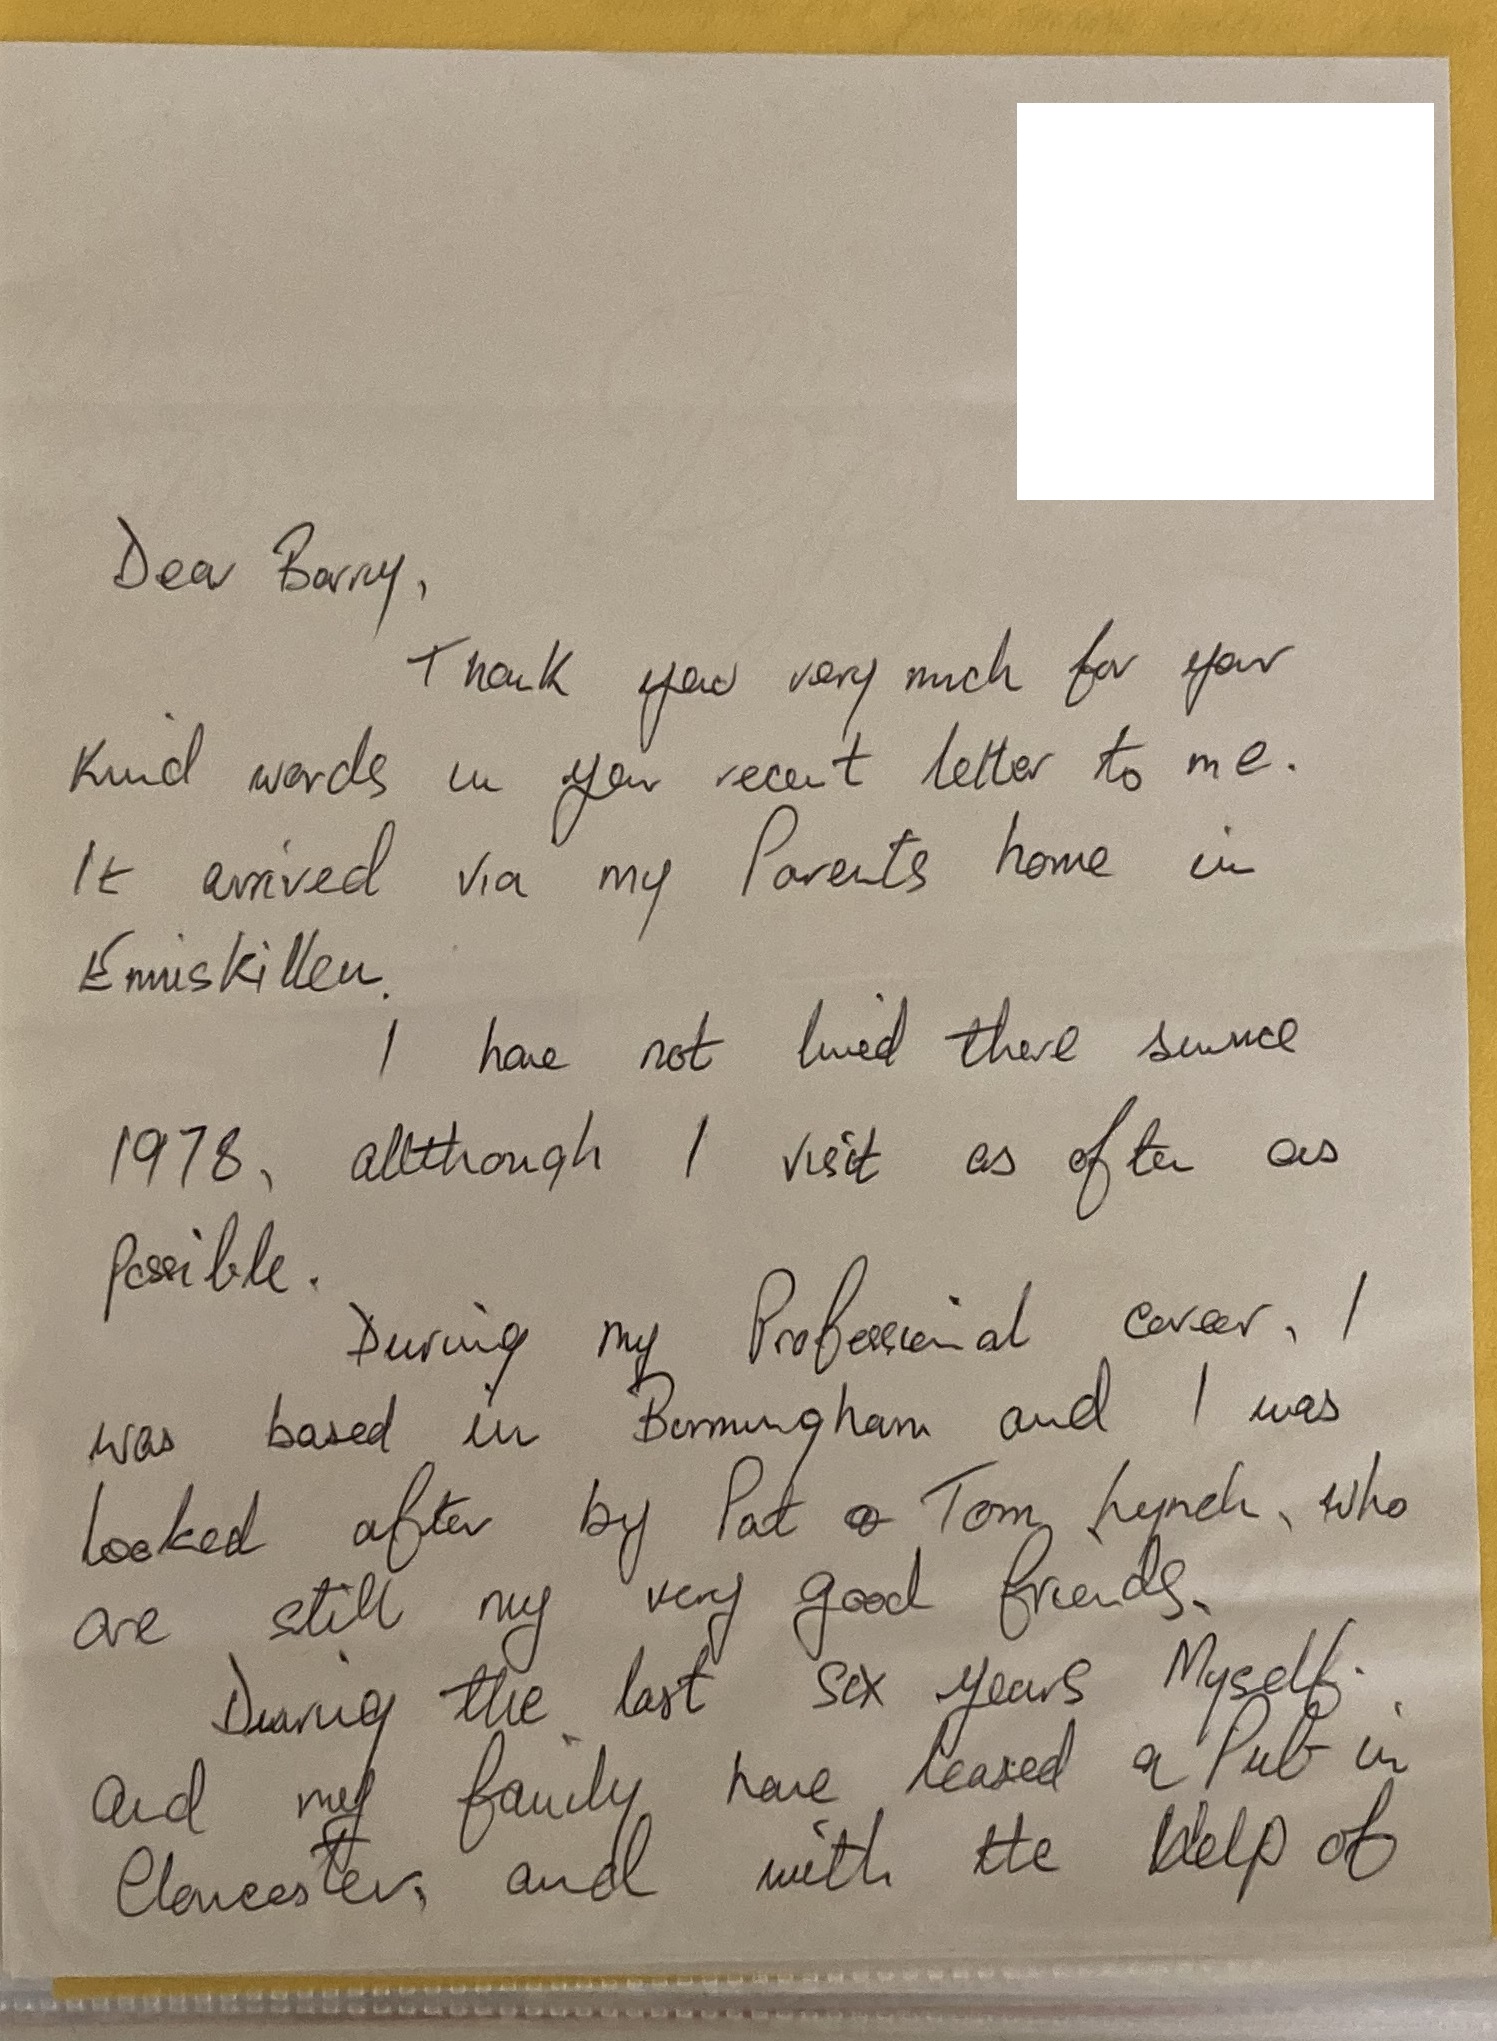 Dear Barry,
Thank you very much for your
Kind words in your recent letter to me.
It arrived via my Parents home in
Enniskillen.
I have not lived there since
1978, allthough I visit as often as
possible.
During my Professional career, I
was based in Birmingham and I was
looked after by Pat & Tom Lynch, who
are still my very good friends.
During the last six years Myself
and my family have leased a Pub in
Gloucester, and with the Help of